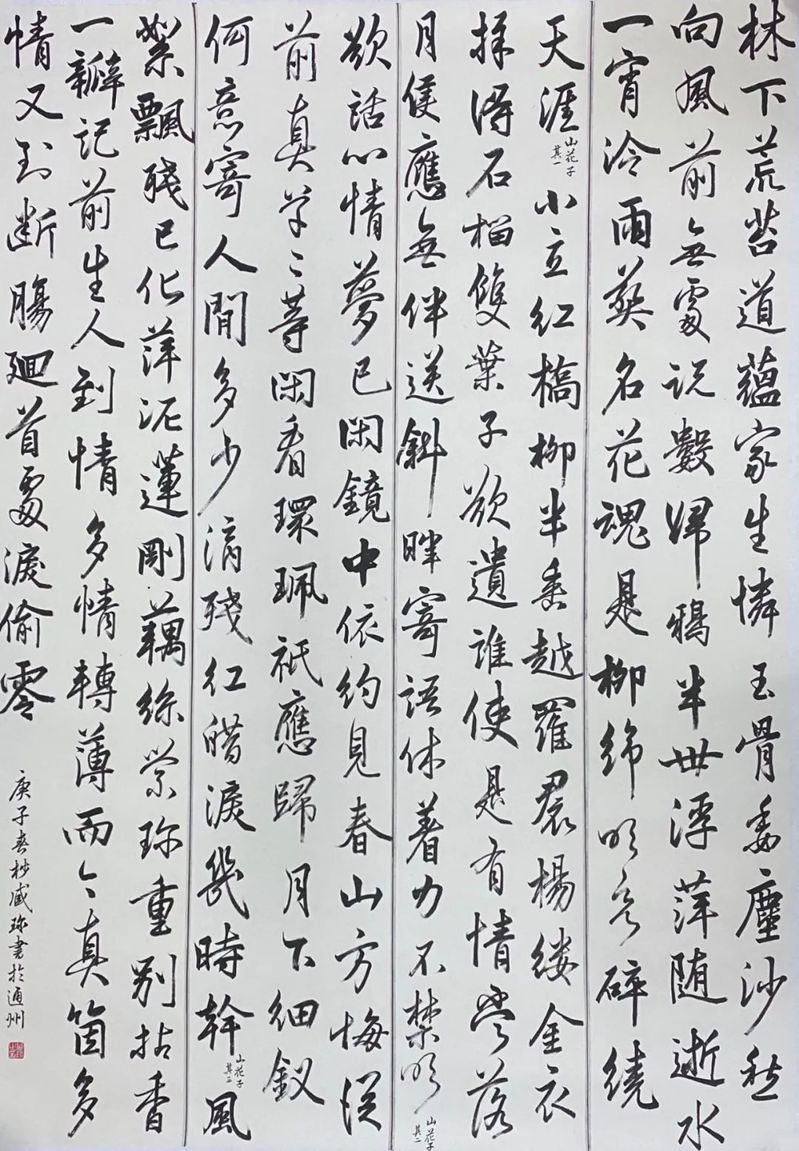 林下荒苔道蘊家生憐玉骨委塵沙愁
向風前無處説數歸鴉半世浮萍隨逝水
一宵冷雨葬名花魂是柳綿吹欲碎繞
天涯 山花子其一 小立紅橋柳半垂越羅裙楊縷金衣
採得石榴雙葉子欲遺誰便是有情當落
月隻應無伴送斜暉寄語休着力不禁吹 山花子其二
欲話心情夢已闌鏡中依約見春山方悔從
前真草草等閑看環珮祇應歸月下細釵
何意寄人間多少滴殘紅蠟淚幾時幹 山花子其三 風
絮飄殘已化萍泥蓮剛藕絲縈珍重別拈香
一瓣記前生人到情多情轉薄而今真箇多
情又到斷腸迴首處淚偷零
庚子春杪盛珍書於通州